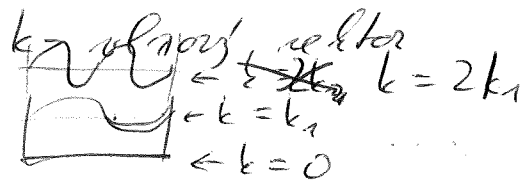 k - vlnový vektor
← k = 2k₁
← k = k₁
← k = 0